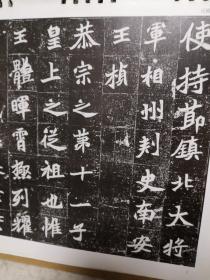 使持節鎮北大將
軍相州刾史南安
王楨
恭宗之第十一子
皇上之從祖也惟
王體暉霄極列耀